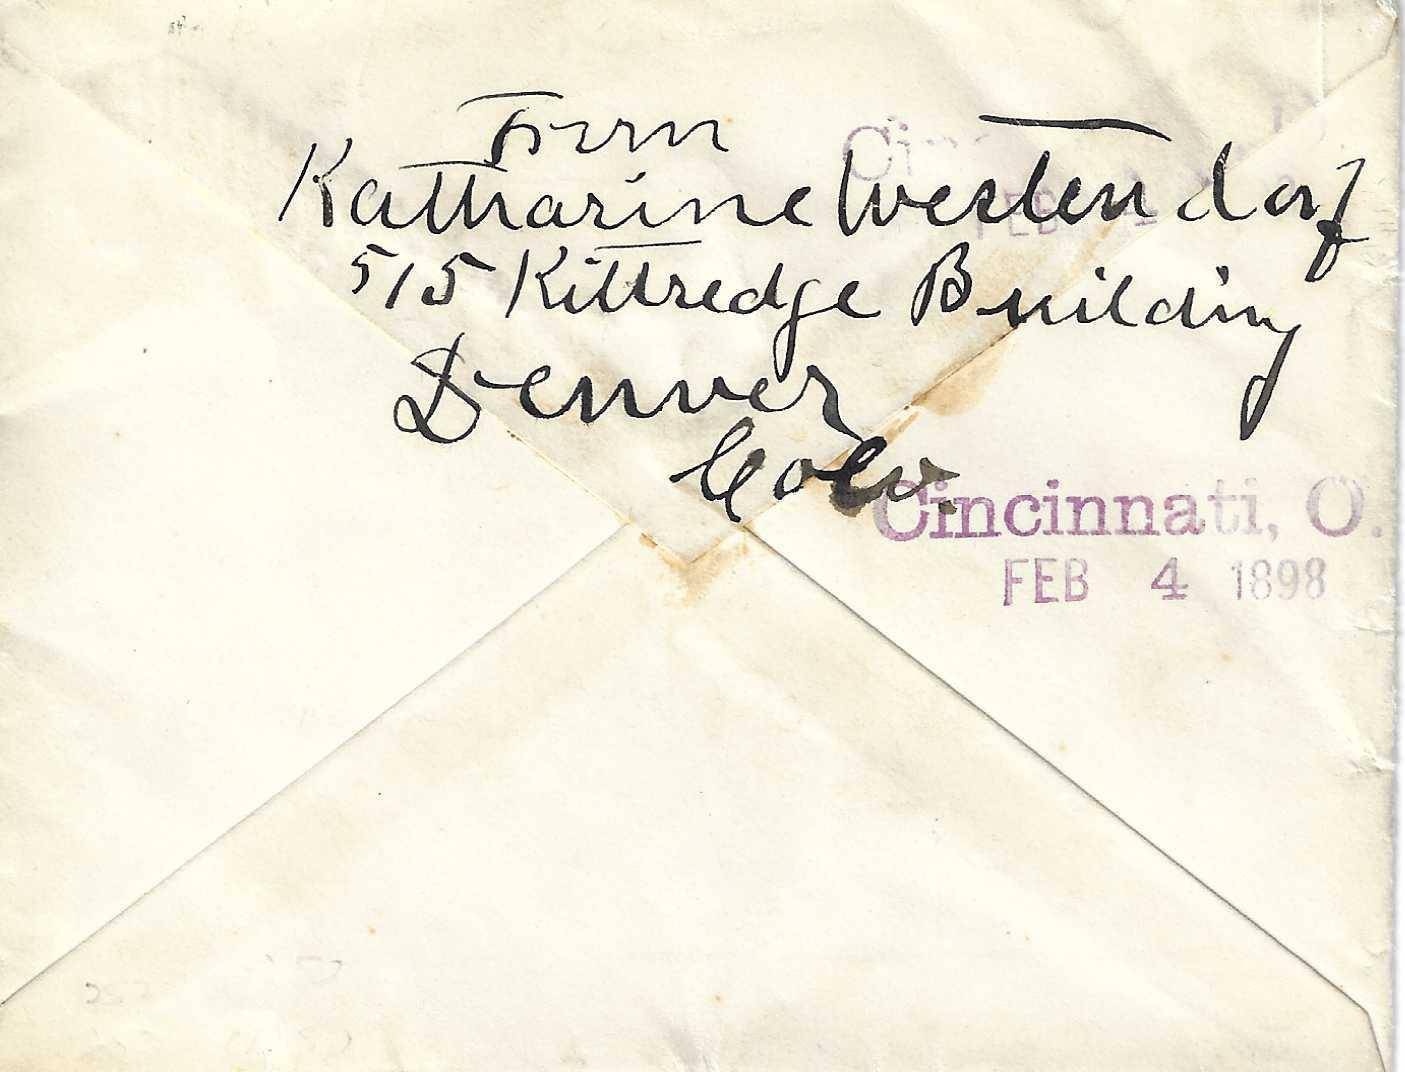 From
Katharine Westendorf
515 Kittredge Building
Denver
Colo.
Cincinnati, O.
FEB 4 1898
Cin
FEB 4